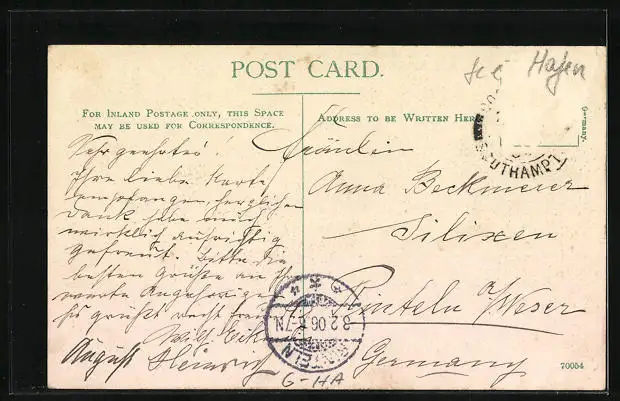 POST CARD.
FOR INLAND POSTAGE ONLY, THIS SPACE
MAY BE USED FOR CORRESPONDENCE.
ADDRESS TO BE WRITTEN HERE
Germany.
Hafen
OUTHAMPT
Sehr geehrtes!
Ihre liebe Karte
empfangen, herzlichen
Dank habe mich
wirklich aufrichtig
gefreut. Bitte die
besten Grüße an Ihre
werte Angehörige
Es grüßt recht
August Heinrich
Fräulein
Anna Beckmeier
Silixen
Rinteln a/Weser
Germany
8.2.06. 6-7N
RINTELN
G-HA
70054